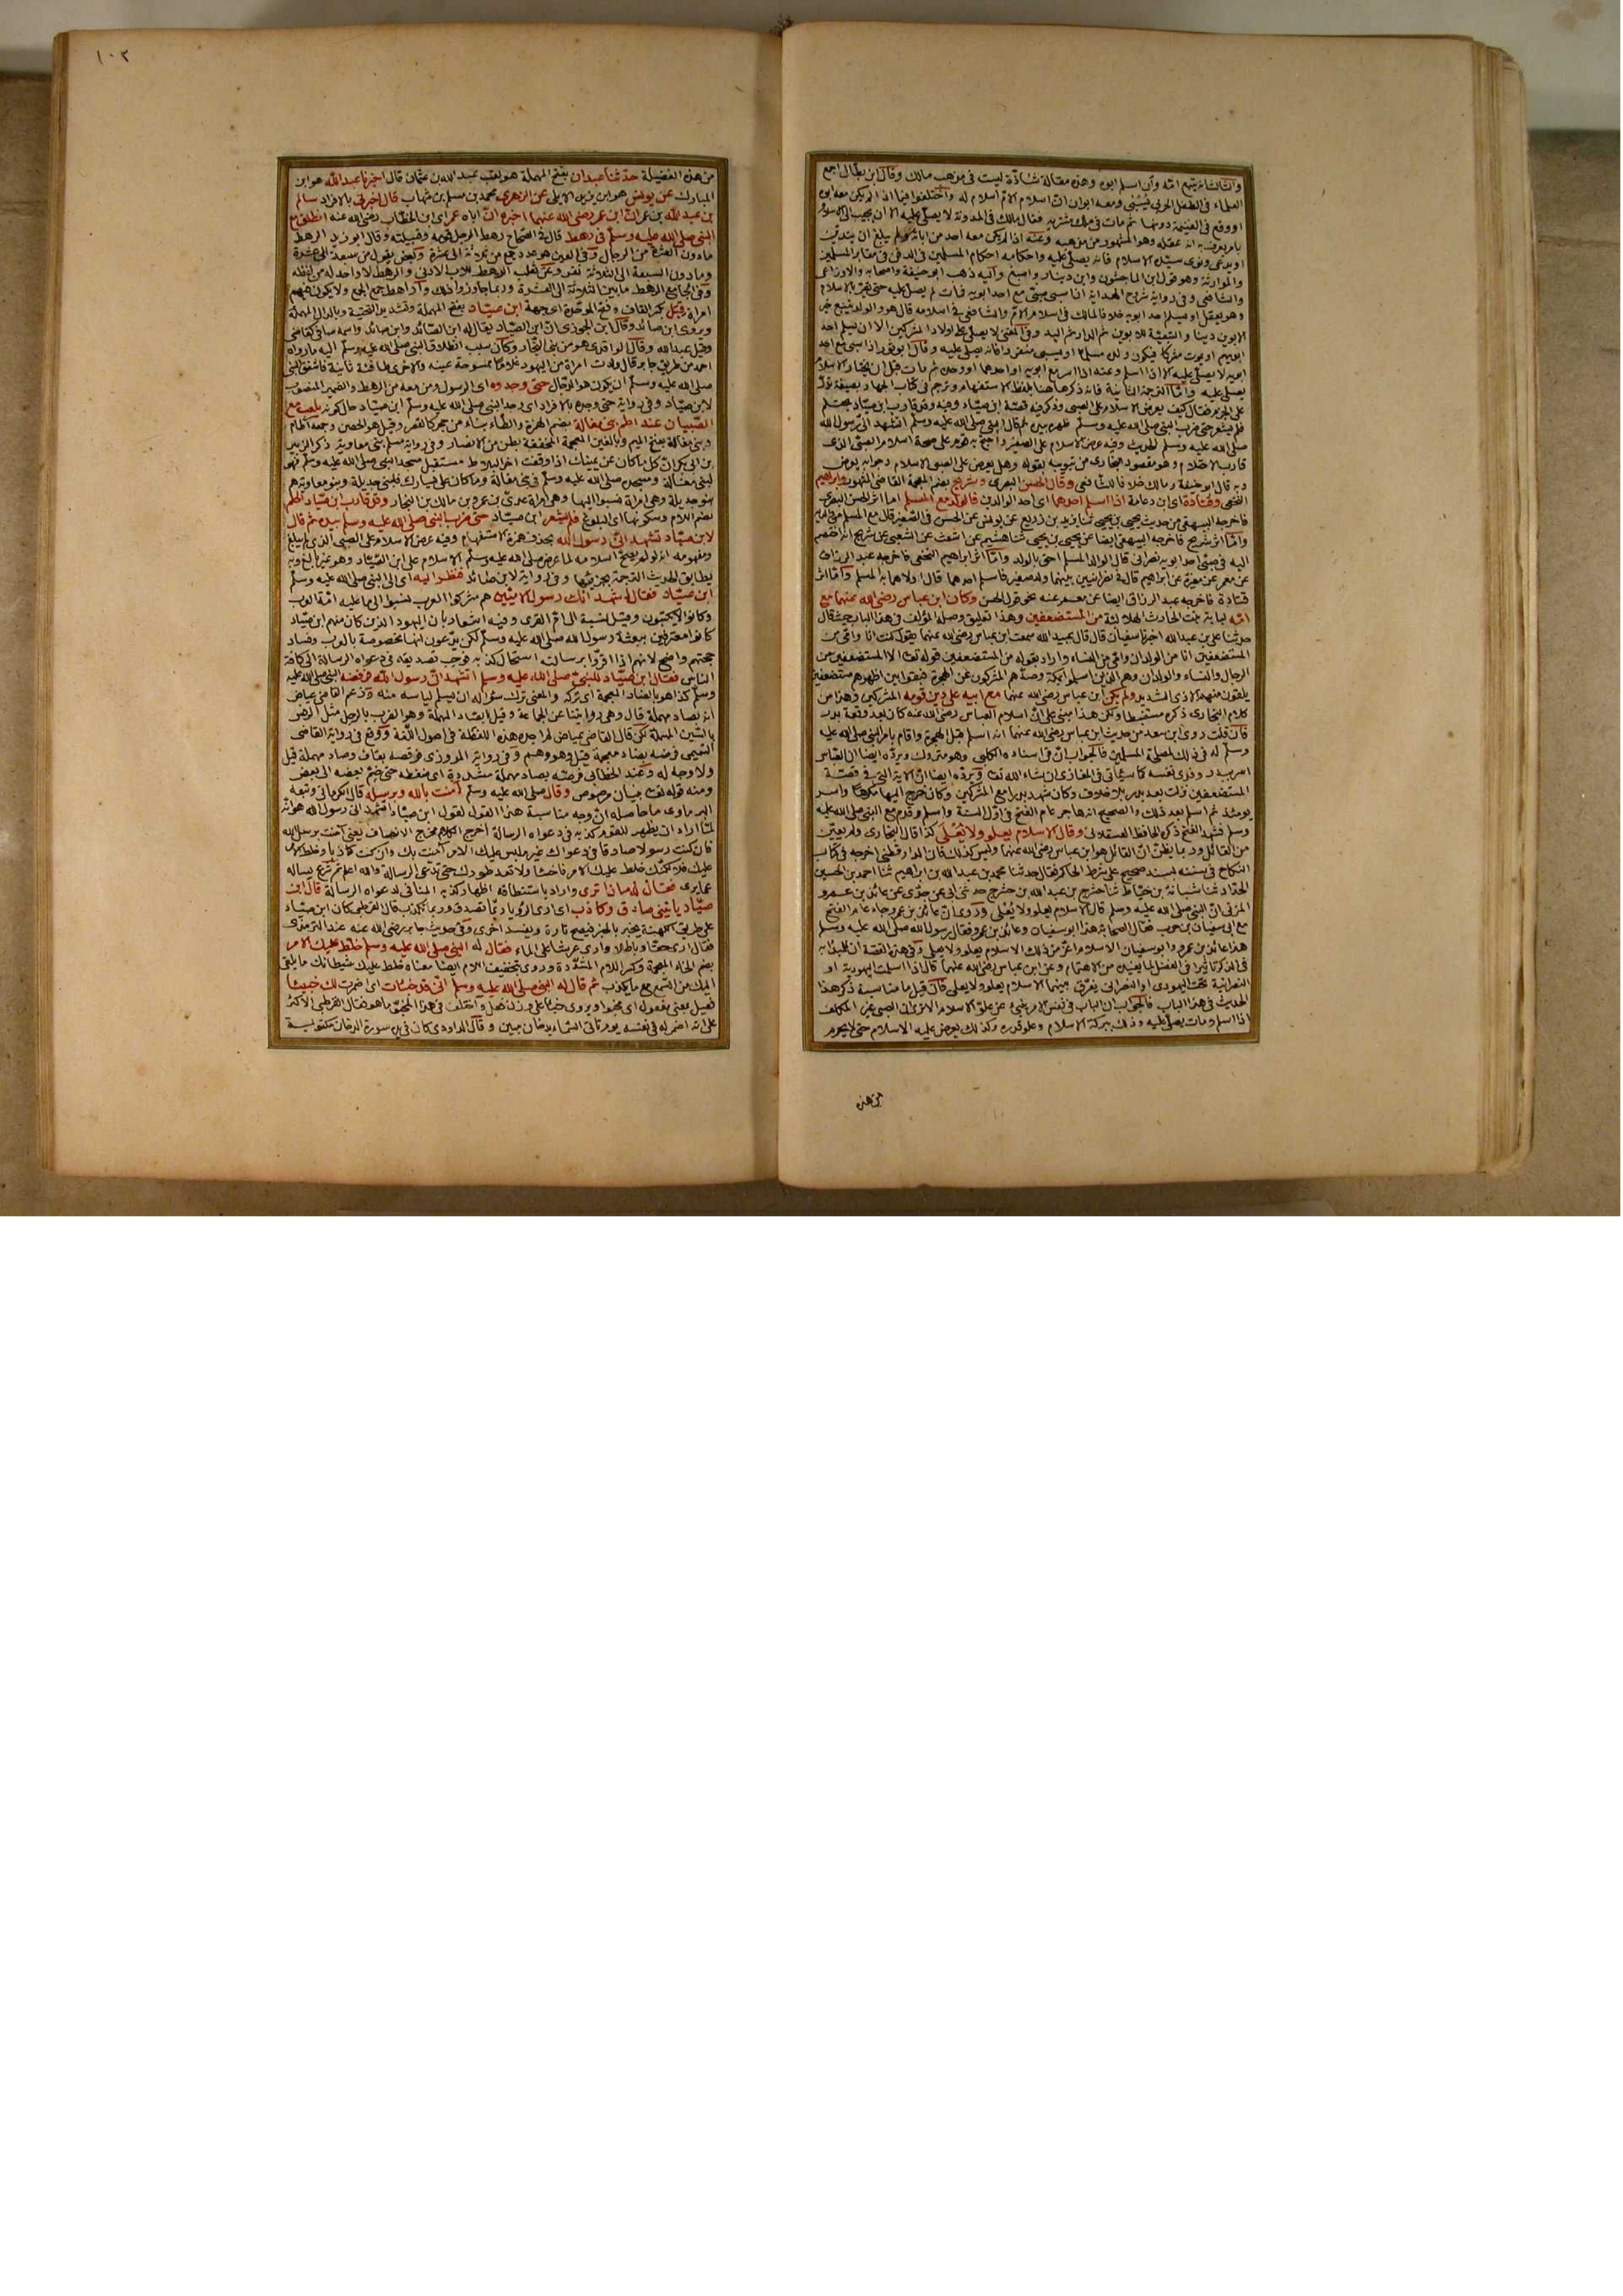 والثالث انه يتبع امّه وان اسلم ابوه وهذه مقالة شاذّة ليست في مذهب مالك وقال ابن بطّال اجمع
العلماء في الطفل الحربي يُسبى ومعه ابوان انّ اسلام الامّ اسلام له واختلفوا فيما اذا لم يكن معه ابوه
او وقع في القسمة دونهما ثم مات في ملك مشتريه فقال مالك في المدونة لا يصلّى عليه الا ان يجيب الى الاسلام
بامر يعرف به انه عقله وهو المشهور من مذهبه وعنه اذا لم يكن معه احد من ابائه ولم يبلغ ان يتديّن
او يدعى ونوى سيّده الاسلام فانه يصلّى عليه واحكامه احكام المسلمين في الدفن في مقابر المسلمين
والموارثة وهو قول ابن الماجشون وابن دينار واصبغ واليه ذهب ابو حنيفة واصحابه والاوزاعي
والشافعي وفي رواية شرح الهداية اذا سبي صبيّ مع احد ابويه فمات لم يصل عليه حتى يقرّ بالاسلام
وهو يعقل او يسلم احد ابويه خلافا لمالك في اسلام الامّ والشافعي في اسلامه قال هو والولد يتبع خير
الابوين دينا والتبعيّة للابوين ثم الدار ثم اليد وفي المغني لا يصلّى على اولاد المشركين الا ان يسلم احد
ابويهم او يموت مشركا فيكون ولده مسلما او يسبى منفردا فانه يصلّى عليه وقال ابو ثور اذا سبي مع احد
ابويه لا يصلّى عليه الا اذا اسلم وعنه اذا اسر مع ابويه او احدهما او وحده ثم مات قبل ان يختار الاسلام
يصلى عليه وامّا الترجمة الثانية فانه ذكرها هنا بلفظ الاستفهام وترجم في كتاب الجهاد بصيغة تدلّ
على الجزم فقال كيف يعرض الاسلام على الصبي وذكر فيه قصة ابن صيّاد وفيه وقد قارب ابن صيّاد يحتلم
فلم يشعر حتى ضرب النبي صلى الله عليه وسلم ظهره بيده ثم قال النبي صلى الله عليه وسلم اتشهد انّي رسول الله
صلى الله عليه وسلم الحديث وفيه عرض الاسلام على الصغير واحتج به قوم على صحة اسلام الصبي الذي
قارب الاحتلام وهو مقصود البخاري من تبويبه بقوله وهل يعرض على الصبي الاسلام وجوابه يعرض
وبه قال ابو حنيفة ومالك خلافا للشافعي وقال الحسن البصري وشريح بضم المعجمة القاضي المشهور وابراهيم
النخعي وقتادة اي ابن دعامة اذا اسلم احدهما اي احد الوالدين فالولد مع المسلم امّا اثر الحسن البصري
فاخرجه البيهقي من حديث يحيى بن يحيى ثنا يزيد بن زريع عن يونس عن الحسن في الصغير قال مع المسلم من والديه
وامّا اثر شريح فاخرجه البيهقي ايضا عن يحيى بن يحيى ثنا هشيم عن اشعث عن الشعبي عن شريح انه اختصم
اليه في صبيّ احد ابويه نصراني قال الوالد المسلم احق بالولد وامّا اثر ابراهيم النخعي فاخرجه عبد الرزاق
عن معمر عن مغيرة عن ابراهيم قال في نصرانيين بينهما ولد صغير فاسلم احدهما قال اولاهما به المسلم وامّا اثر
قتادة فاخرجه عبد الرزاق ايضا عن معمر عنه نحو قول الحسن وكان ابن عباس رضي الله عنهما مع
امّه لبابة بنت الحارث الهلاليّة من المستضعفين وهذا تعليق وصله المؤلف في هذا الباب حيث قال
حدثنا علي بن عبد الله اخبرنا سفيان قال قال عبيد الله سمعت ابن عباس رضي الله عنهما يقول كنت انا وامّي من
المستضعفين انا من الولدان وامّي من النساء واراد بقوله من المستضعفين قوله تعالى الا المستضعفين من
الرجال والنساء والولدان وهم الذين اسلموا بمكة وصدّهم المشركون عن الهجرة فبقوا بين اظهرهم مستضعفين
يلقون منهم الاذى الشديد ولم يكن ابن عباس رضي الله عنهما مع ابيه على دين قومه المشركين وهذا من
كلام البخاري ذكره مستنبطا ولكن هذا مبني على انّ اسلام العباس رضي الله عنه كان بعد وقعة بدر
فان قلت روى ابن سعد من حديث ابن عباس رضي الله عنهما انه اسلم قبل الهجرة واقام بامر النبي صلى الله عليه
وسلم له في ذلك لمصلحة المسلمين فالجواب انّ في اسناده الكلبي وهو متروك ويردّه ايضا ان العباس
اسر ببدر وفدى نفسه كما سيأتي في المغازي ان شاء الله تعالى ويردّه ايضا انّ الاية التي في قصّة
المستضعفين نزلت بعد بدر بلا خلاف وكان شهد بدرا مع المشركين وكان خرج اليها مكرها واسر
يومئذ ثم اسلم بعد ذلك والصحيح انه هاجر عام الفتح في اوّل السنة واسلم وقدم مع النبي صلى الله عليه
وسلم فشهد الفتح ذكره الحافظ العسقلاني وقال الاسلام يعلو ولا يُعلى كذا قال البخاري ولم يعيّن
من القائل وربما يظنّ انّ القائل هو ابن عباس رضي الله عنهما وليس كذلك فان الدارقطني اخرجه في كتاب
النكاح في سننه بسند صحيح على شرط الحاكم فقال حدثنا محمد بن عبد الله بن ابراهيم ثنا احمد بن الحسين
الحدّاد ثنا شبابة بن خيّاط ثنا حشرج بن عبد الله بن حشرج حدثني ابي عن جدّي عن عائذ بن عمرو
المزني انّ النبي صلى الله عليه وسلم قال الاسلام يعلو ولا يُعلى وروي انّ عائذ بن عمرو جاء عام الفتح
مع ابي سفيان بن حرب فقال الصحابة هذا ابو سفيان وعائذ بن عمرو فقال رسول الله صلى الله عليه وسلم
هذا عائذ بن عمرو وابو سفيان الاسلام اعزّ من ذلك الاسلام يعلو ولا يعلى وفي هذه القصة ان للبدأة به
في الذكر تأثيرا في الفضل لما يفيده من الاهتمام وعن ابن عباس رضي الله عنهما قال اذا اسلمت اليهودية او
النصرانية تحت اليهودي او النصراني يفرّق بينهما الاسلام يعلو ولا يعلى فان قيل ما مناسبة ذكر هذا
الحديث في هذا الباب فالجواب ان الباب في نفس الامر ينبئ عن علوّ الاسلام الا ترى ان الصبي غير المكلف
اذا اسلم ومات يصلّى عليه وذلك ببركة الاسلام وعلو قدره وكذلك يعرض عليه الاسلام حتى لا يحرم
من هذه
١٠٢
من هذه الفضيلة حدّثنا عبدان بفتح المهملة هو لقب عبد الله بن عثمان قال اخبرنا عبد الله هو ابن
المبارك عن يونس هو ابن يزيد الايلي عن الزهري محمد بن مسلم بن شهاب قال اخبرني بالافراد سالم
بن عبد الله بن عمر انّ ابن عمر رضي الله عنهما اخبره انّ اباه عمر اي ابن الخطّاب رضي الله عنه انطلق مع
النبي صلى الله عليه وسلم في رهط قال في الصّحاح رهط الرجل قومه وقبيلته وقال ابو زيد الرهط
ما دون العشرة من الرجال وفي العين هو عدد جمع من ثلاثة الى عشرة وبعض يقول من سبعة الى عشرة
وما دون السبعة الى الثلاثة نفر وعن ثعلب الرهط للاب الادنى والرهط لا واحد له من لفظه
وفي الجامع الرهط ما بين الثلاثة الى العشرة وربما جاوزوا ذلك واراهط جمع الجمع ولا يكون فيهم
امراة قبل بكسر القاف وفتح الموحّدة اي جهة ابن صيّاد بفتح المهملة وتشديد التحتية وبالدال المهملة
ويروى ابن صائد وقال ابن الجوزي انّ ابن الصيّاد يقال له ابن الصّائد وابن صائد واسمه صافي كقاضي
وقيل عبد الله وقال الواقدي هو من بني النجّار وكان سبب انطلاق النبي صلى الله عليه وسلم اليه ما رواه
احمد من طريق جابر قال ولدت امراة من اليهود غلاما ممسوحة عينه والاخرى طالعة ناتئة فاشفق النبي
صلى الله عليه وسلم ان يكون هو الدجال حتى وجدوه اي الرسول ومن معه من الرهط والضمير المنصوب
لابن صيّاد وفي رواية حتى وجده بالافراد اي وجد النبي صلى الله عليه وسلم ابن صيّاد حال كونه يلعب مع
الصّبيان عند اطم بني مغالة بضم الهمزة والطاء بناء من حجر كالقصر وقيل هو الحصن وجمعه اطام
وبني مغالة بفتح الميم وبالغين المعجمة المخففة بطن من الانصار وفي رواية مسلم بني معاوية ذكر الزبير
بن ابي بكر انّ كل ما كان عن يمينك اذا وقفت اخر البلاط مستقبل مسجد النبي صلى الله عليه وسلم فهو
لبني مغالة ومسجده صلى الله عليه وسلم في بني مغالة وما كان على يسارك فلبني جديلة وبنو معاوية هم
بنو جديلة وهي امراة نسبوا اليها وهي امراة عديّ بن عمرو بن مالك بن النجار وقد قارب ابن صيّاد الحلم
بضم اللام وسكونها اي البلوغ فلم يشعر ابن صيّاد حتى ضرب النبي صلى الله عليه وسلم بيده ثم قال
لابن صيّاد تشهد انّي رسول الله بحذف همزة الاستفهام وفيه عرض الاسلام على الصبي الذي لم يبلغ
ومفهومه انه لو لم يصحّ اسلامه لما عرض صلى الله عليه وسلم الاسلام على ابن الصيّاد وهو غير بالغ وبه
يطابق الحديث الترجمة بجزئيها وفي رواية لابن صائد فنظر اليه اي الى النبي صلى الله عليه وسلم
ابن صيّاد فقال اشهد انّك رسول الامّيّين هم مشركوا العرب نسبوا الى ما عليه امّة العرب
وكانوا لا يكتبون وقيل نسبة الى امّ القرى وفيه اشعار بان اليهود الذين كان منهم ابن صيّاد
كانوا معترفين ببعثة رسول الله صلى الله عليه وسلم لكن يدّعون انها مخصوصة بالعرب وفساد
حجتهم واضح لانهم اذا اقرّوا برسالته استحال كذبه فوجب تصديقه في دعواه الرسالة الى كافة
الناس فقال ابن صيّاد للنبي صلى الله عليه وسلم اتشهد انّي رسول الله فرفضه النبي صلى الله عليه
وسلم كذا هو بالضاد المعجمة اي تركه والمعنى ترك سؤاله ان يسلم لياسه منه وزعم القاضي عياض
انه بصاد مهملة قال وهي روايتنا عن الجماعة وقيل الصاد المهملة وهو الضرب بالرجل مثل الرفس
بالسّين المهملة لكن قال القاضي عياض لم اجد هذه اللفظة في اصول اللّغة ووقع في رواية القاضي
التميمي فرضه بضاد معجمة قيل وهو وهم وفي رواية المروزي فرقصه بقاف وصاد مهملة قيل
ولا وجه له وعند الخطابي فرصّه بصاد مهملة مشدّدة اي ضغطه حتى ضمّ بعضه الى بعض
ومنه قوله تعالى بنيان مرصوص وقال صلى الله عليه وسلم امنت بالله وبرسله قال الكرماني وتبعه
البرماوي ما حاصله انّ وجه مناسبة هذا القول لقول ابن صيّاد اتشهد انّي رسول الله هو انّه
لمّا اراد ان يظهر للقوم كذبه في دعواه الرسالة اخرج الكلام مخرج الانصاف يعني آمنت برسل الله
فان كنت رسولا صادقا في دعواك غير ملبس عليك الامر امنت بك وان كنت كاذبا وخلط الامر
عليك فلا لكنّك خلط عليك الامر فاخسأ ولا تعد طورك حتى تدّعي الرسالة والله اعلم ثم شرع يساله
عما يرى فقال له ماذا ترى واراد باستنطاقه اظهار كذبه المنافي لدعواه الرسالة قال ابن
صيّاد ياتيني صادق وكاذب اي ارى الرؤيا ربّما تصدق وربما تكذب قال القرطبي كان ابن صيّاد
على طريق الكهنة يخبر بالخبر فيصح تارة ويفسد اخرى وفي حديث جابر رضي الله عنه عند الترمذي
فقال ارى حقّا وباطلا وارى عرشا على الماء فقال له النبي صلى الله عليه وسلم خلط عليك الامر
بضم الخاء المعجمة وكسر اللام المشدّدة وروي بتخفيف اللام ايضا معناه خلط عليك شيطانك ما يلقي
اليك من السّمع مع ما يكذب ثم قال له النبي صلى الله عليه وسلم انّي قد خبأت اي اضمرت لك خبيئا
فعيل بمعنى مفعول اي مخبوا ويروى خبئا على وزن فعل واختلف في هذا المخبّى ما هو فقال القرطبي الاكثر
على انّه اضمر له في نفسه يوم تأتي السّماء بدخان مبين وقال الداودي كان في يده سورة الدخان مكتوبة